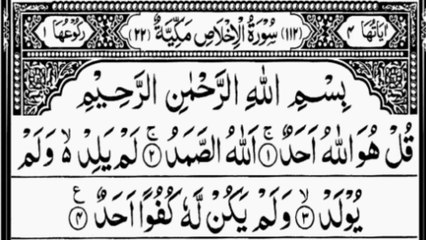 اٰیَاتُهَا ۴ (۱۱۲) سُوْرَةُ الْاِخْلَاصِ مَكِّیَّةٌ (۲۲) رُكُوْعُهَا ۱
بِسْمِ اللهِ الرَّحْمٰنِ الرَّحِیْمِ
قُلْ هُوَ اللهُ اَحَدٌ ۚ۱ اَللهُ الصَّمَدُ ۚ۲ لَمْ یَلِدْ ۙ۬ وَلَمْ
یُوْلَدْ ۙ۳ وَلَمْ یَكُنْ لَّهٗ كُفُوًا اَحَدٌ ۴ ع